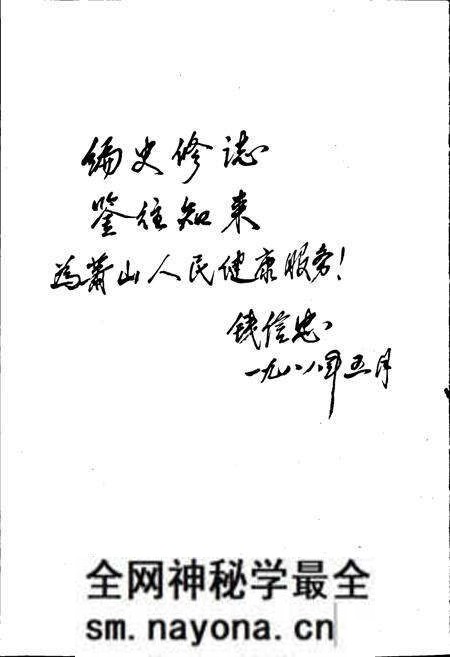 编史修誌
鉴往知来
为萧山人民健康服务！
钱信忠
一九八八年五月
全网神秘学最全
sm.nayona.cn